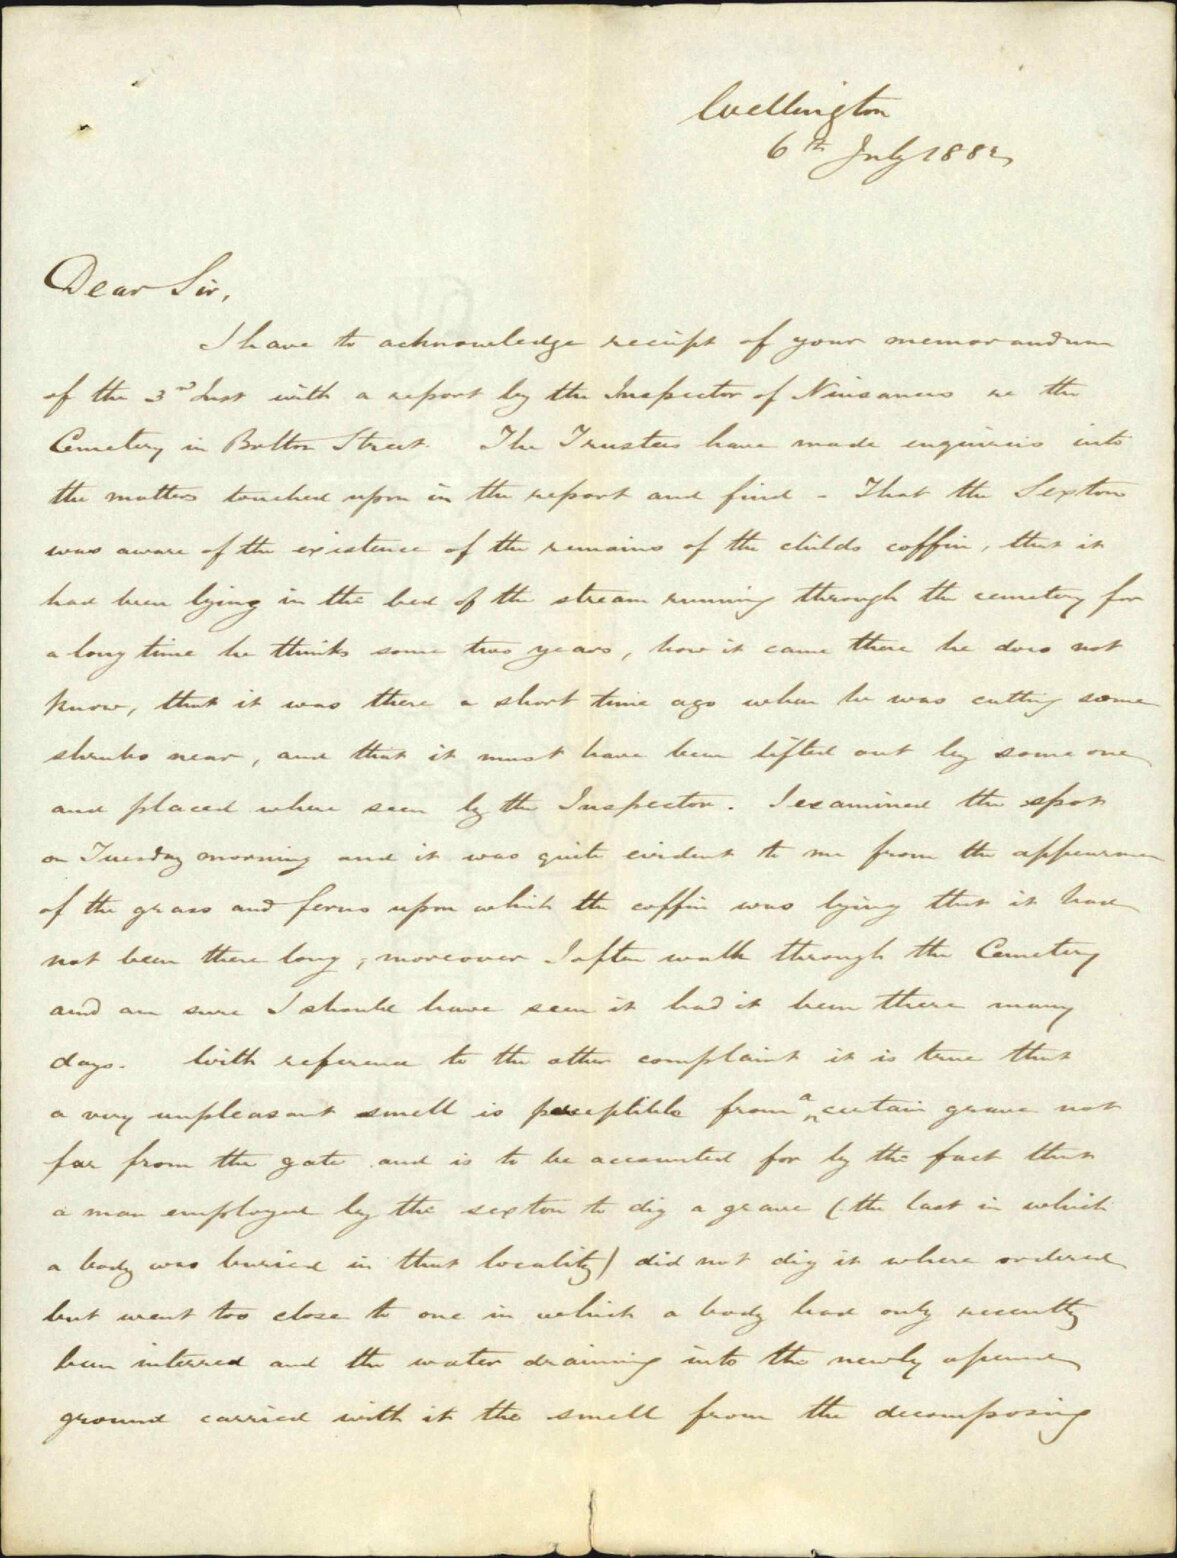 Wellington
6th July 1882
Dear Sir,
I have to acknowledge receipt of your memorandum
of the 3rd Inst with a report by the Inspector of Nuisances re the
Cemetery in Bolton Street. The Trustees have made enquiries into
the matters touched upon in the report and find - That the Sexton
was aware of the existence of the remains of the childs coffin, that it
had been lying in the bed of the stream running through the cemetery for
a long time he thinks some two years, how it came there he does not
know, that it was there a short time ago when he was cutting some
shrubs near, and that it must have been lifted out by some one
and placed where seen by the Inspector. I examined the spot
on Tuesday morning and it was quite evident to me from the appearance
of the grass and ferns upon which the coffin was lying that it had
not been there long, moreover I often walk through the Cemetery
and am sure I should have seen it had it been there many
days. With reference to the other complaint it is true that
a very unpleasant smell is perceptible from a certain grave not
far from the gate and is to be accounted for by the fact that
a man employed by the sexton to dig a grave (the last in which
a body was buried in that locality) did not dig it where ordered
but went too close to one in which a body had only recently
been interred and the water draining into the newly opened
ground carried with it the smell from the decomposing